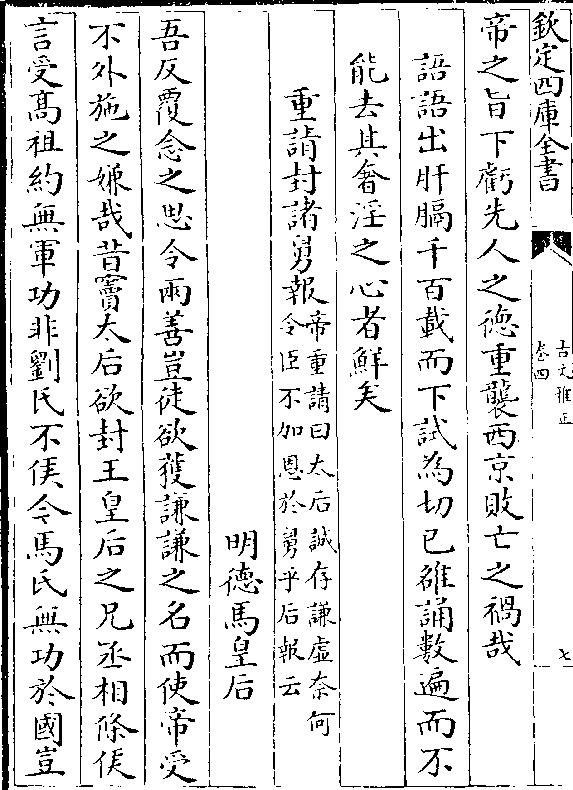 欽定四庫全書
古文雅正
卷四
七
帝之旨下虧先人之徳重襲西京敗亡之禍哉
語語出肝膈千百載而下試為切己雒誦數遍而不
能去其奢淫之心者鮮矣
重請封諸舅報帝重請曰太后誠存謙虛奈何
令臣不加恩於舅乎后報云
明徳馬皇后
吾反覆念之思令兩善豈徒欲獲謙謙之名而使帝受
不外施之嫌哉昔竇太后欲封王皇后之兄丞相條侯
言受髙祖約無軍功非劉氏不侯今馬氏無功於國豈